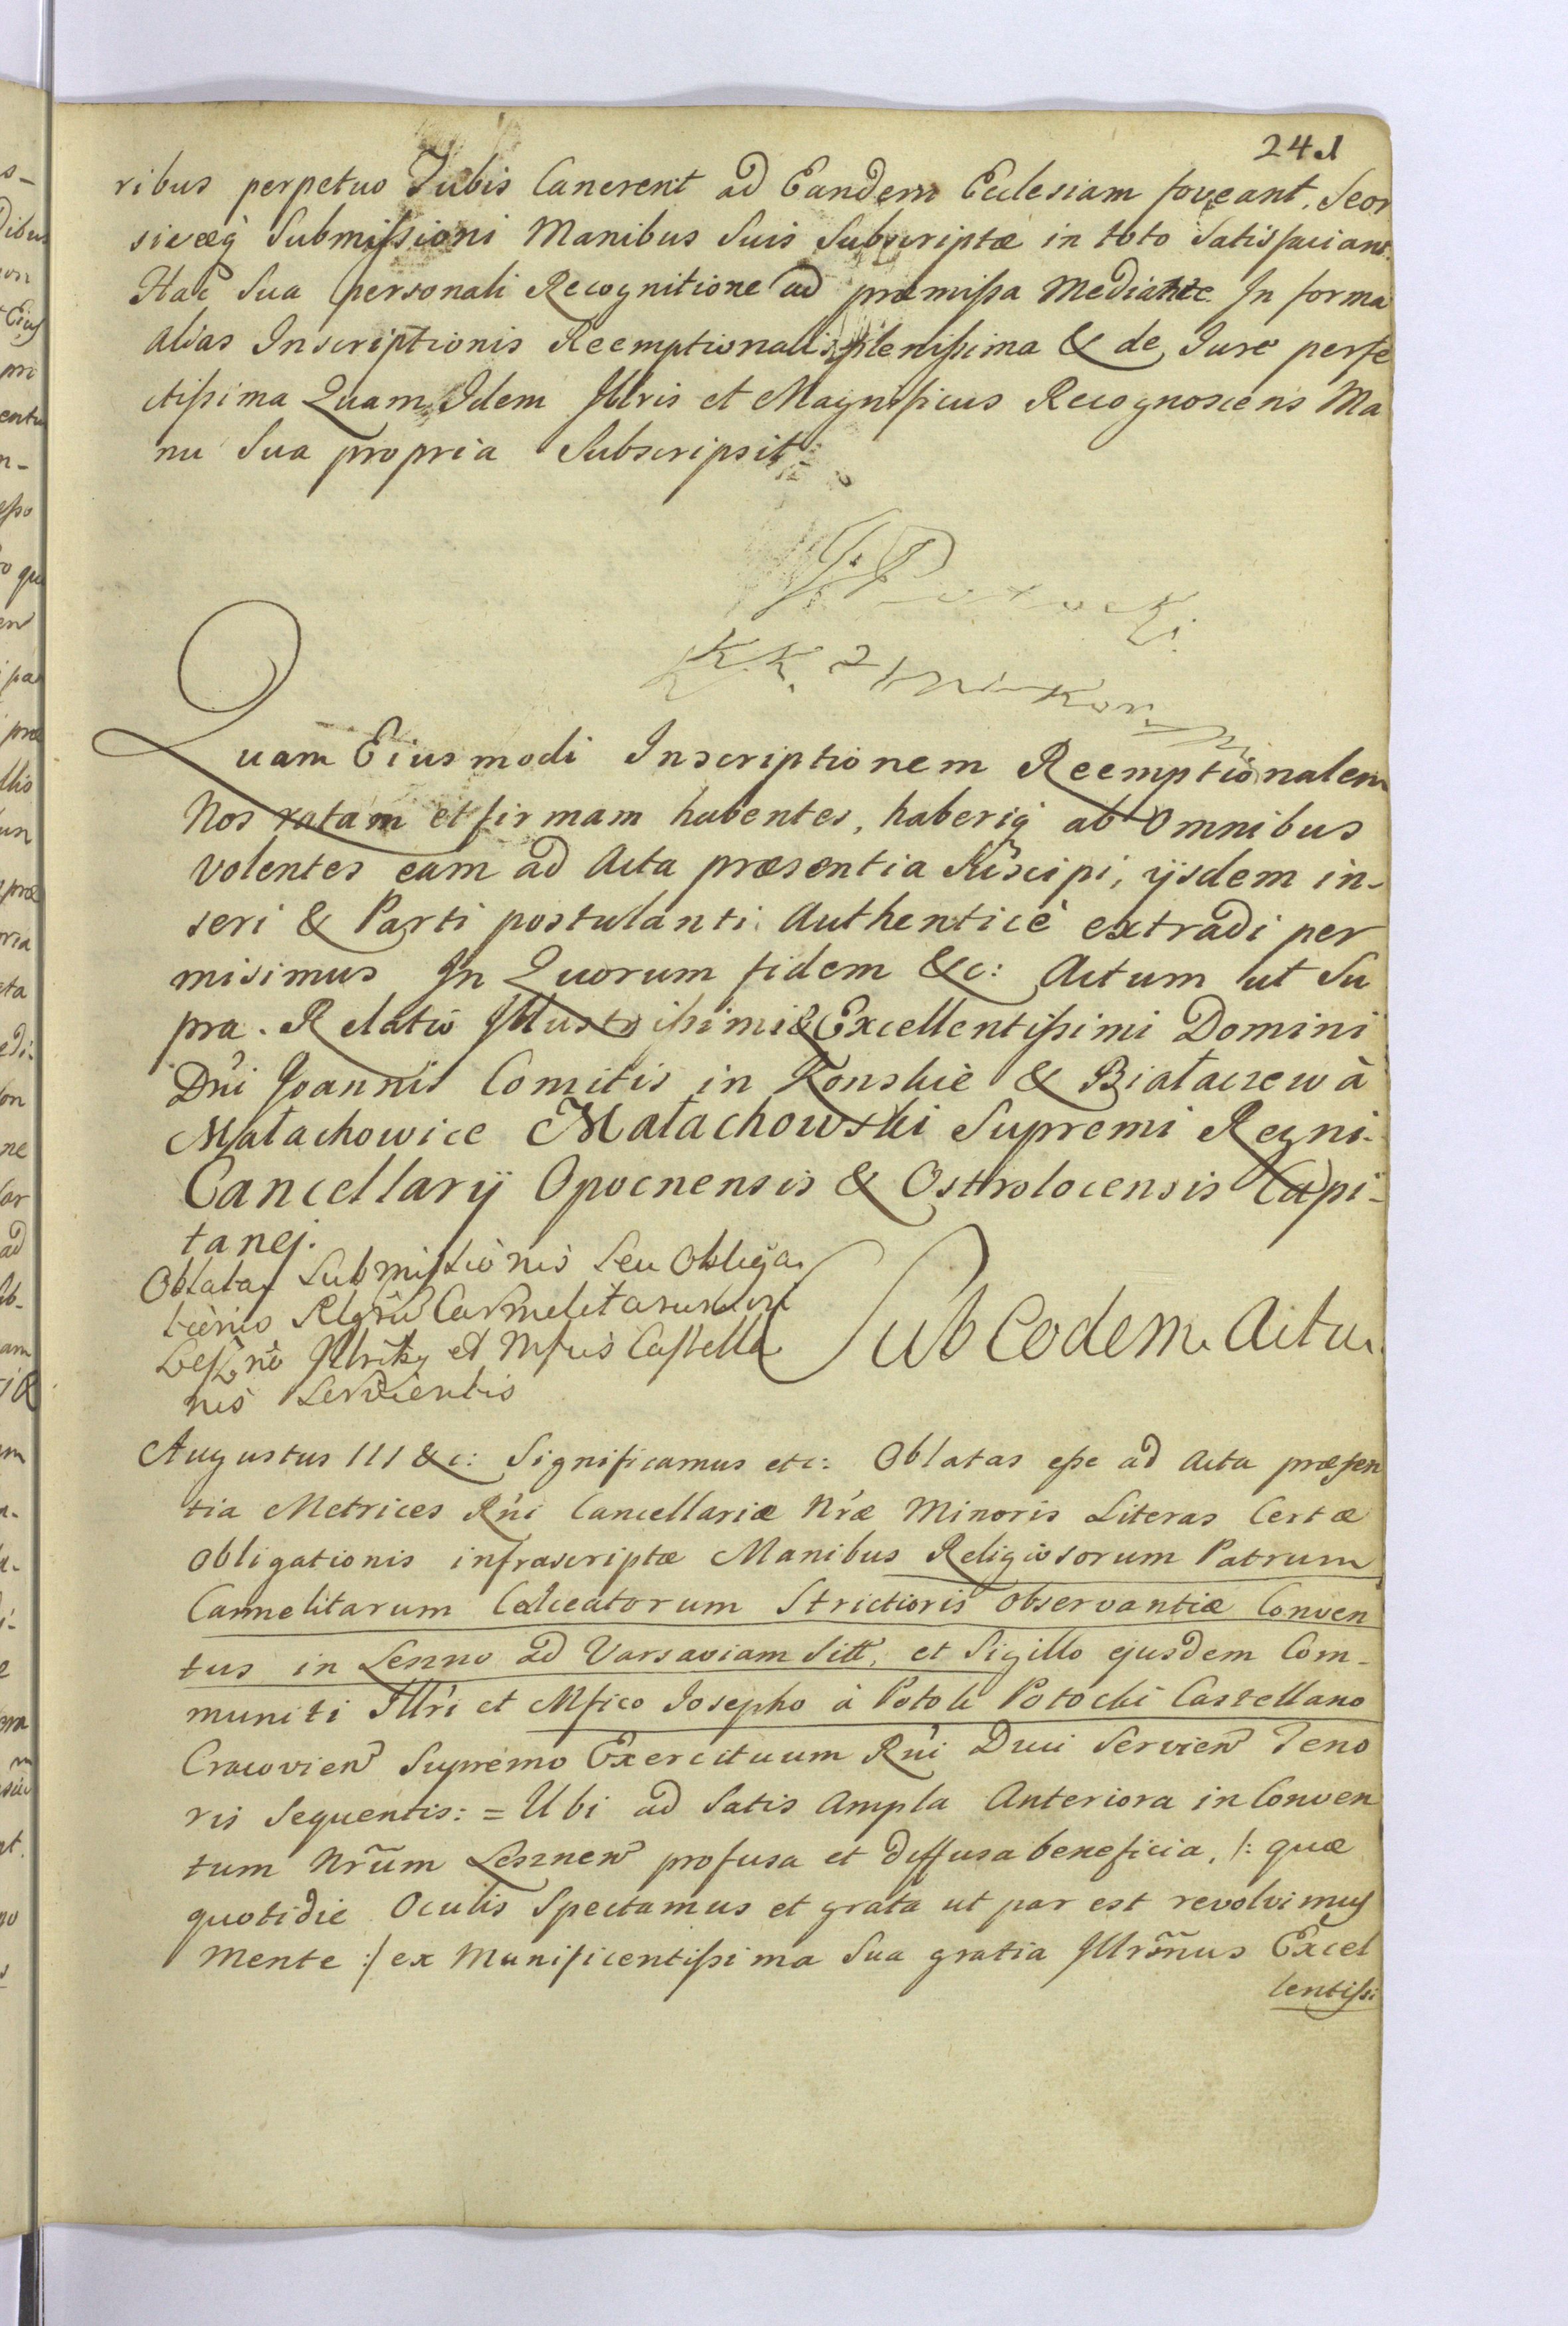 241
ribus perpetuo Tubis Canerent ad Eandem Ecclesiam foveant, Seor
sivæq Submissioni Manibus Suis Subscriptæ in toto Satisfaciant.
Hac Sua personali Recognitione ad præmissa Mediante. In forma
alias Inscriptionis Reemptionalis plenissima & de Jure perfe
ctissima Quam Idem Illris et Magnificus Recognoscens Ma
nu Sua propria Subscripsit.
J. Potocki
K. K.
Quam Eiusmodi Inscriptionem Reemptionalem
Nos ratam et firmam habentes, haberiq ab omnibus
volentes eam ad Acta præsentia Suscipi, ijsdem in-
seri & Parti postulanti Authenticè extradi per
misimus In Quorum fidem &c: Actum ut Su
pra. Relatio Illustrissimi & Excellentissimi Domini
Dni Joannis Comitis in Konskie & Białaczew à
Małachowice Małachowski Supremi Regni
Cancellarij Opocnensis & Osthrolocensis Capi-
tanej.
Oblata Submissionis Seu Obliga
tionis Relgrũ Carmelitarum
Leszno Illri et Mfico Castella
nis Servientis
Sub Eodem Actu
Augustus III &c: Significamus etc: Oblatas esse ad Acta præsen
tia Metrices Rni Cancellariæ Nræ Minoris Literas Certæ
Obligationis infrascriptæ Manibus Religiosorum Patrum
Carmelitarum Calceatorum Strictioris Observantiæ Conven
tus in Leszno ad Varsaviam Sitt, et Sigillo ejusdem Com-
muniti Illri et Mfico Josepho à Potok Potocki Castellano
Cracovien Supremo Exercituum Rni Duci Servien Teno
ris Sequentis: = Ubi ad Satis Ampla Anteriora in Conven
tum Nrũm Lesznen profusa et diffusa beneficia, /: quæ
quotidie Oculis Spectamus et grata ut par est revolvimus
Mente :/ ex Munificentissima Sua gratia Illrsm̃us Excel
lentissi